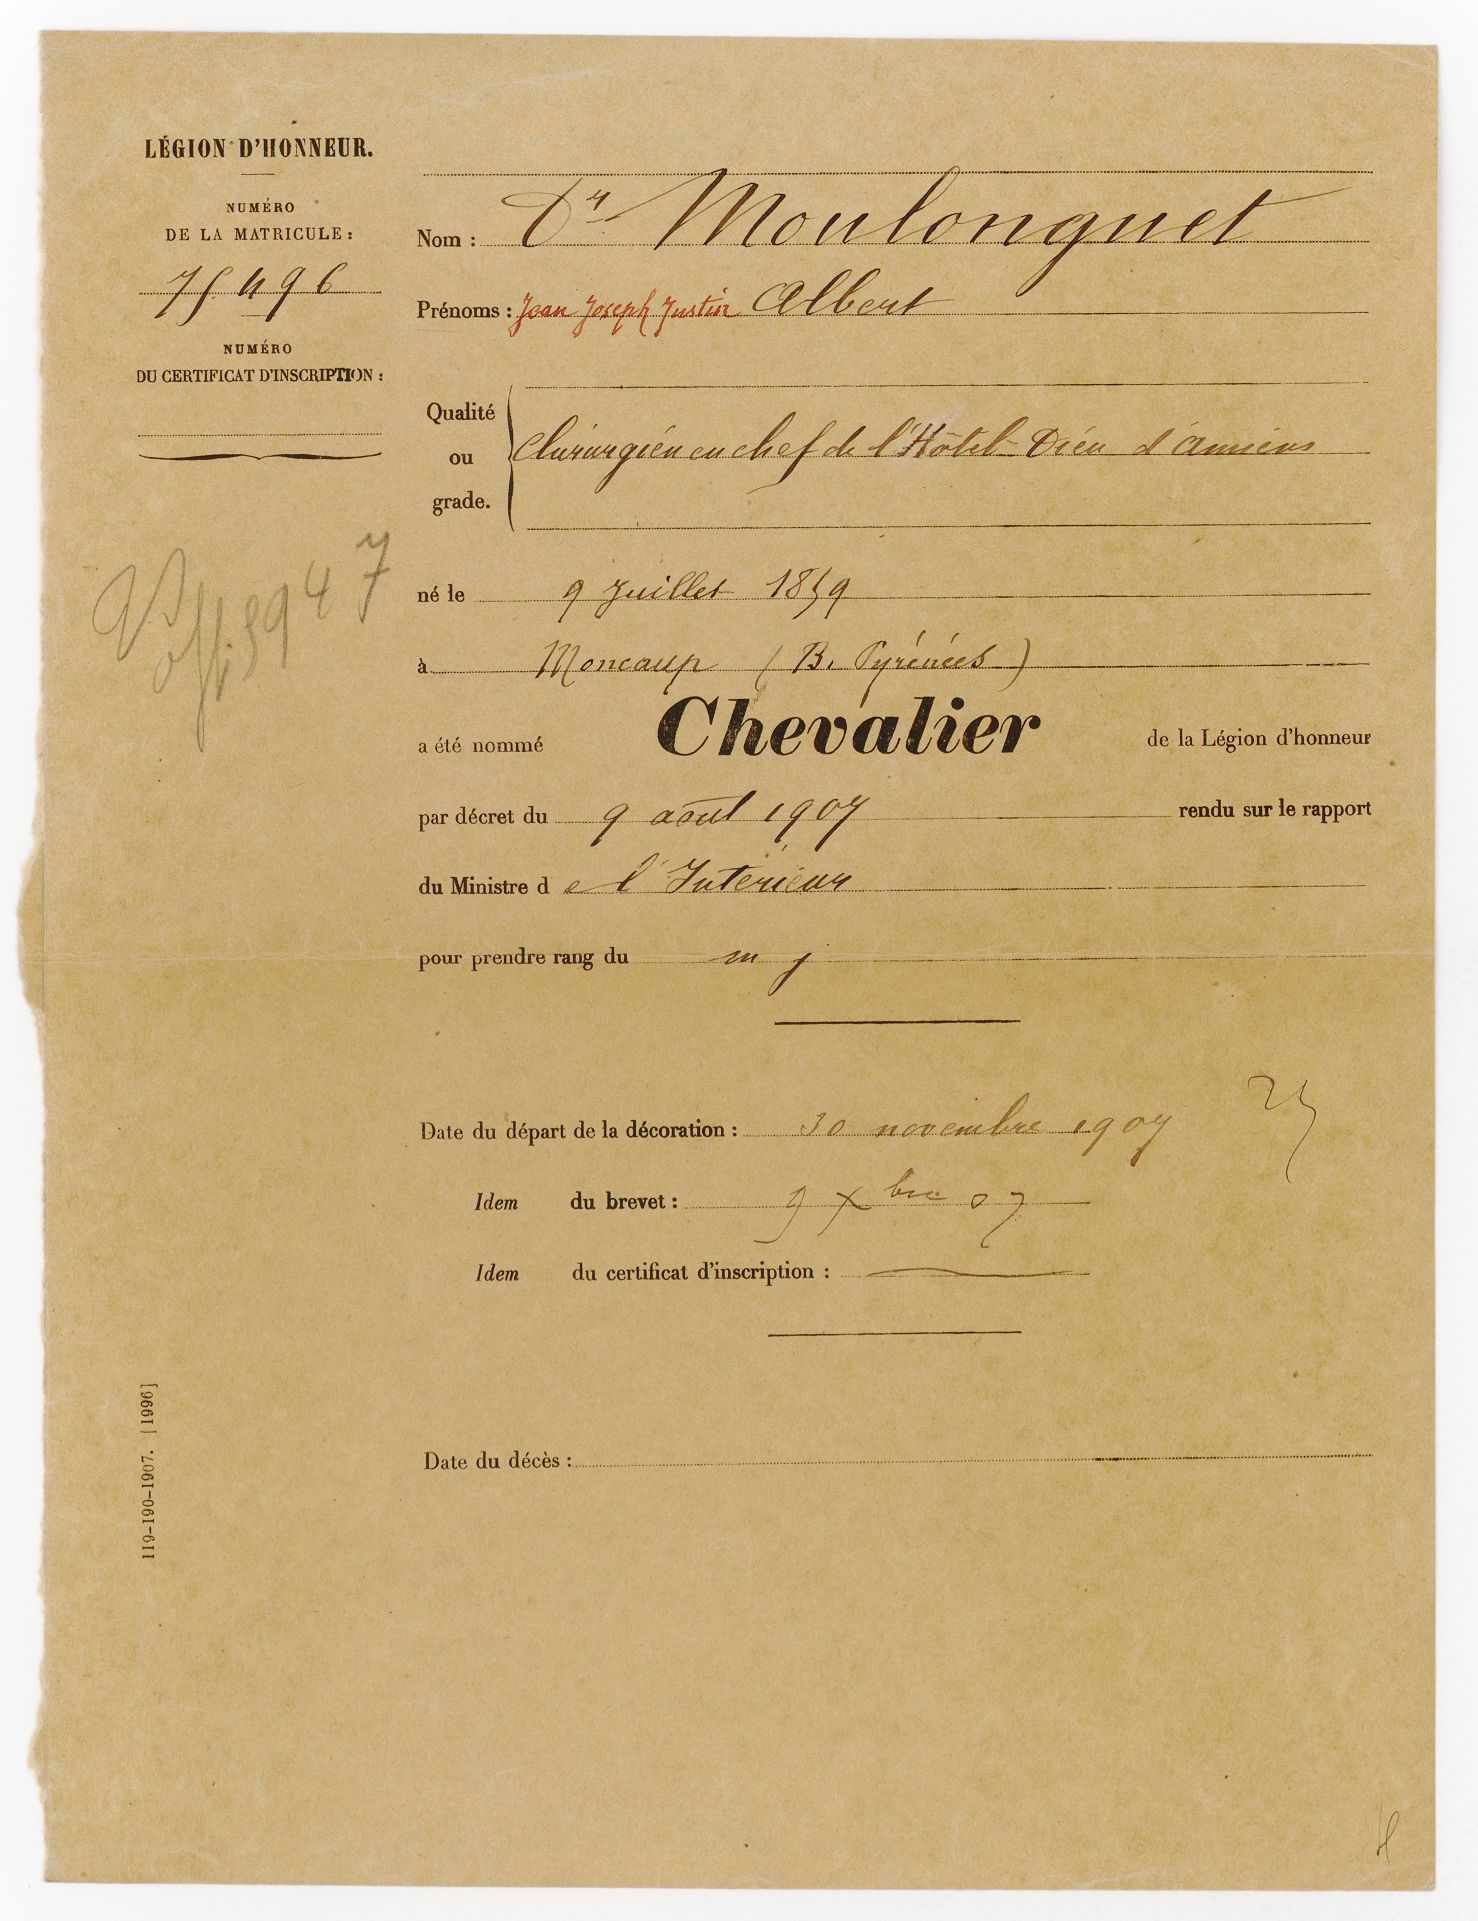 LÉGION D'HONNEUR.
NUMÉRO
DE LA MATRICULE :
75496
NUMÉRO
DU CERTIFICAT D'INSCRIPTION :
Nom : Dr Moulonguet
Prénoms : Jean Joseph Justin Albert
Qualité
ou
grade.
Chirurgien en chef de l'Hôtel-Dieu d'Amiens
né le 9 Juillet 1859
à Moncaup (B. Pyrénées)
a été nommé Chevalier de la Légion d'honneur
par décret du 9 août 1907 rendu sur le rapport
du Ministre de l'Intérieur
pour prendre rang du m j
Date du départ de la décoration : 30 novembre 1907
Idem du brevet : 9 Xbre 07
Idem du certificat d'inscription :
Date du décès :
119-190-1907. [1996]